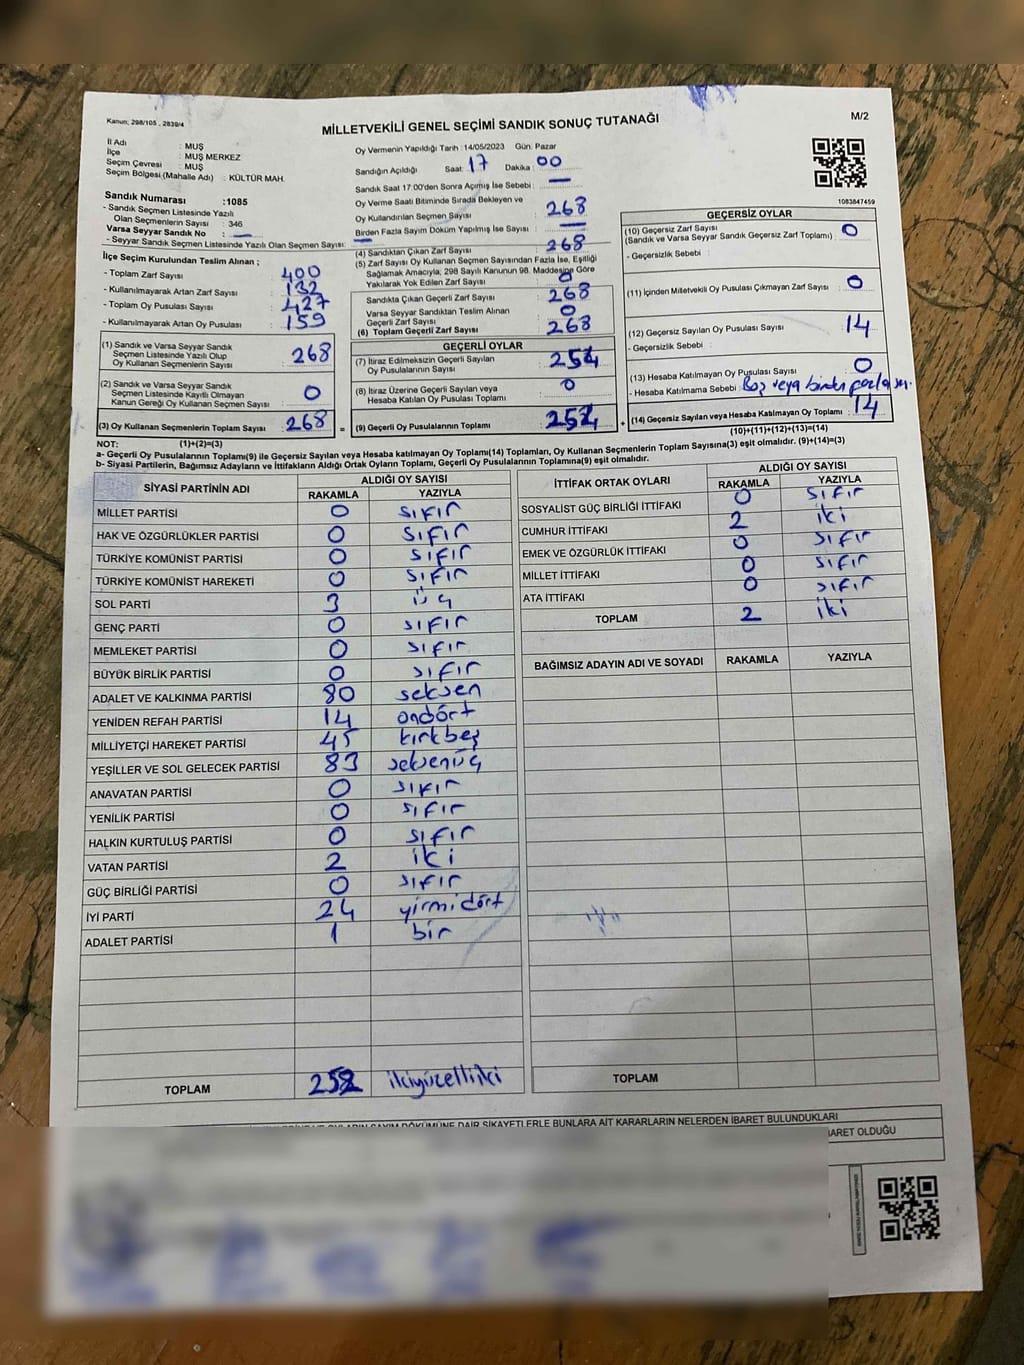 Kanun; 298/105 . 2839/4
MİLLETVEKİLİ GENEL SEÇİMİ SANDIK SONUÇ TUTANAĞI
M/2
İl Adı : MUŞ
İlçe : MUŞ MERKEZ
Seçim Çevresi : MUŞ
Seçim Bölgesi.(Mahalle Adı) : KÜLTÜR MAH.
Oy Vermenin Yapıldığı Tarih : 14/05/2023 Gün: Pazar
Sandığın Açıldığı Saat: 17 Dakika : 00
Sandık Saat 17.00'den Sonra Açımış İse Sebebi : —
Oy Verme Saati Bitiminde Sırada Bekleyen ve
Oy Kullandırılan Seçmen Sayısı : 268
Birden Fazla Sayım Döküm Yapılmış İse Sayısı : —
1083847459
Sandık Numarası :1085
- Sandık Seçmen Listesinde Yazılı
Olan Seçmenlerin Sayısı : 346
Varsa Seyyar Sandık No : —
- Seyyar Sandık Seçmen Listesinde Yazılı Olan Seçmen Sayısı: —
İlçe Seçim Kurulundan Teslim Alınan ;
- Toplam Zarf Sayısı : 400
- Kullanılmayarak Artan Zarf Sayısı : 132
- Toplam Oy Pusulası Sayısı : 427
- Kullanılmayarak Artan Oy Pusulası : 159
(1) Sandık ve Varsa Seyyar Sandık
Seçmen Listesinde Yazılı Olup
Oy Kullanan Seçmenlerin Sayısı : 268
(2) Sandık ve Varsa Seyyar Sandık
Seçmen Listesinde Kayıtlı Olmayan
Kanun Gereği Oy Kullanan Seçmen Sayısı : 0
(3) Oy Kullanan Seçmenlerin Toplam Sayısı : 268
(4) Sandıktan Çıkan Zarf Sayısı : 268
(5) Zarf Sayısı Oy Kullanan Seçmen Sayısından Fazla İse, Eşitliği
Sağlamak Amacıyla, 298 Sayılı Kanunun 98. Maddesine Göre
Yakılarak Yok Edilen Zarf Sayısı : 0
Sandıkta Çıkan Geçerli Zarf Sayısı : 268
Varsa Seyyar Sandıktan Teslim Alınan
Geçerli Zarf Sayısı : 0
(6) Toplam Geçerli Zarf Sayısı : 268
GEÇERLİ OYLAR
(7) İtiraz Edilmeksizin Geçerli Sayılan
Oy Pusulasının Sayısı : 254
(8) İtiraz Üzerine Geçerli Sayılan veya
Hesaba Katılan Oy Pusulası Toplamı : 0
= (9) Geçerli Oy Pusulasının Toplamı : 254 +
GEÇERSİZ OYLAR
(10) Geçersiz Zarf Sayısı
(Sandık ve Varsa Seyyar Sandık Geçersiz Zarf Toplamı) : 0
- Geçersizlik Sebebi :
(11) İçinden Milletvekili Oy Pusulası Çıkmayan Zarf Sayısı : 0
(12) Geçersiz Sayılan Oy Pusulası Sayısı : 14
- Geçersizlik Sebebi :
(13) Hesaba Katılmayan Oy Pusulası Sayısı : 0
- Hesaba Katılmama Sebebi : Boş veya birden fazla
(14) Geçersiz Sayılan veya Hesaba Katılmayan Oy Toplamı : 14
NOT: (1)+(2)=(3)
(10)+(11)+(12)+(13)=(14)
a- Geçerli Oy Pusulalarının Toplamı(9) ile Geçersiz Sayılan veya Hesaba katılmayan Oy Toplamı(14) Toplamları, Oy Kullanan Seçmenlerin Toplam Sayısına(3) eşit olmalıdır. (9)+(14)=(3)
b- Siyasi Partilerin, Bağımsız Adayların ve İttifakların Aldığı Ortak Oyların Toplamı, Geçerli Oy Pusulalarının Toplamına(9) eşit olmalıdır.
SİYASİ PARTİNİN ADI ALDIĞI OY SAYISI
RAKAMLA YAZIYLA
MİLLET PARTİSİ 0 sıfır
HAK VE ÖZGÜRLÜKLER PARTİSİ 0 sıfır
TÜRKİYE KOMÜNİST PARTİSİ 0 sıfır
TÜRKİYE KOMÜNİST HAREKETİ 0 sıfır
SOL PARTİ 3 üç
GENÇ PARTİ 0 sıfır
MEMLEKET PARTİSİ 0 sıfır
BÜYÜK BİRLİK PARTİSİ 0 sıfır
ADALET VE KALKINMA PARTİSİ 80 seksen
YENİDEN REFAH PARTİSİ 14 ondört
MİLLİYETÇİ HAREKET PARTİSİ 45 kırkbeş
YEŞİLLER VE SOL GELECEK PARTİSİ 83 seksenüç
ANAVATAN PARTİSİ 0 sıfır
YENİLİK PARTİSİ 0 sıfır
HALKIN KURTULUŞ PARTİSİ 0 sıfır
VATAN PARTİSİ 2 iki
GÜÇ BİRLİĞİ PARTİSİ 0 sıfır
İYİ PARTİ 24 yirmidört
ADALET PARTİSİ 1 bir
TOPLAM 252 ikiyüzelliiki
İTTİFAK ORTAK OYLARI ALDIĞI OY SAYISI
RAKAMLA YAZIYLA
SOSYALİST GÜÇ BİRLİĞİ İTTİFAKI 0 sıfır
CUMHUR İTTİFAKI 2 iki
EMEK VE ÖZGÜRLÜK İTTİFAKI 0 sıfır
MİLLET İTTİFAKI 0 sıfır
ATA İTTİFAKI 0 sıfır
TOPLAM 2 iki
BAĞIMSIZ ADAYIN ADI VE SOYADI RAKAMLA YAZIYLA
TOPLAM
DÖKÜMÜNE DAİR ŞİKAYETLERLE BUNLARA AİT KARARLARIN NELERDEN İBARET BULUNDUKLARI
İBARET OLDUĞU